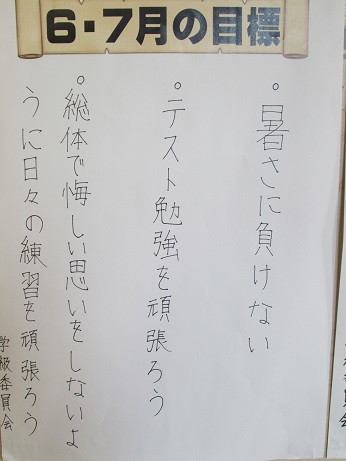 6・7月の目標
・暑さに負けない
・テスト勉強を頑張ろう
・総体で悔しい思いをしないよ
うに日々の練習を頑張ろう
学級委員会